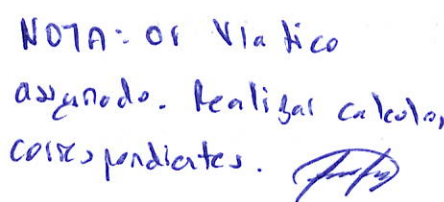 NOTA: 01 Viatico
asignado. Realizar calculos
correspondientes.